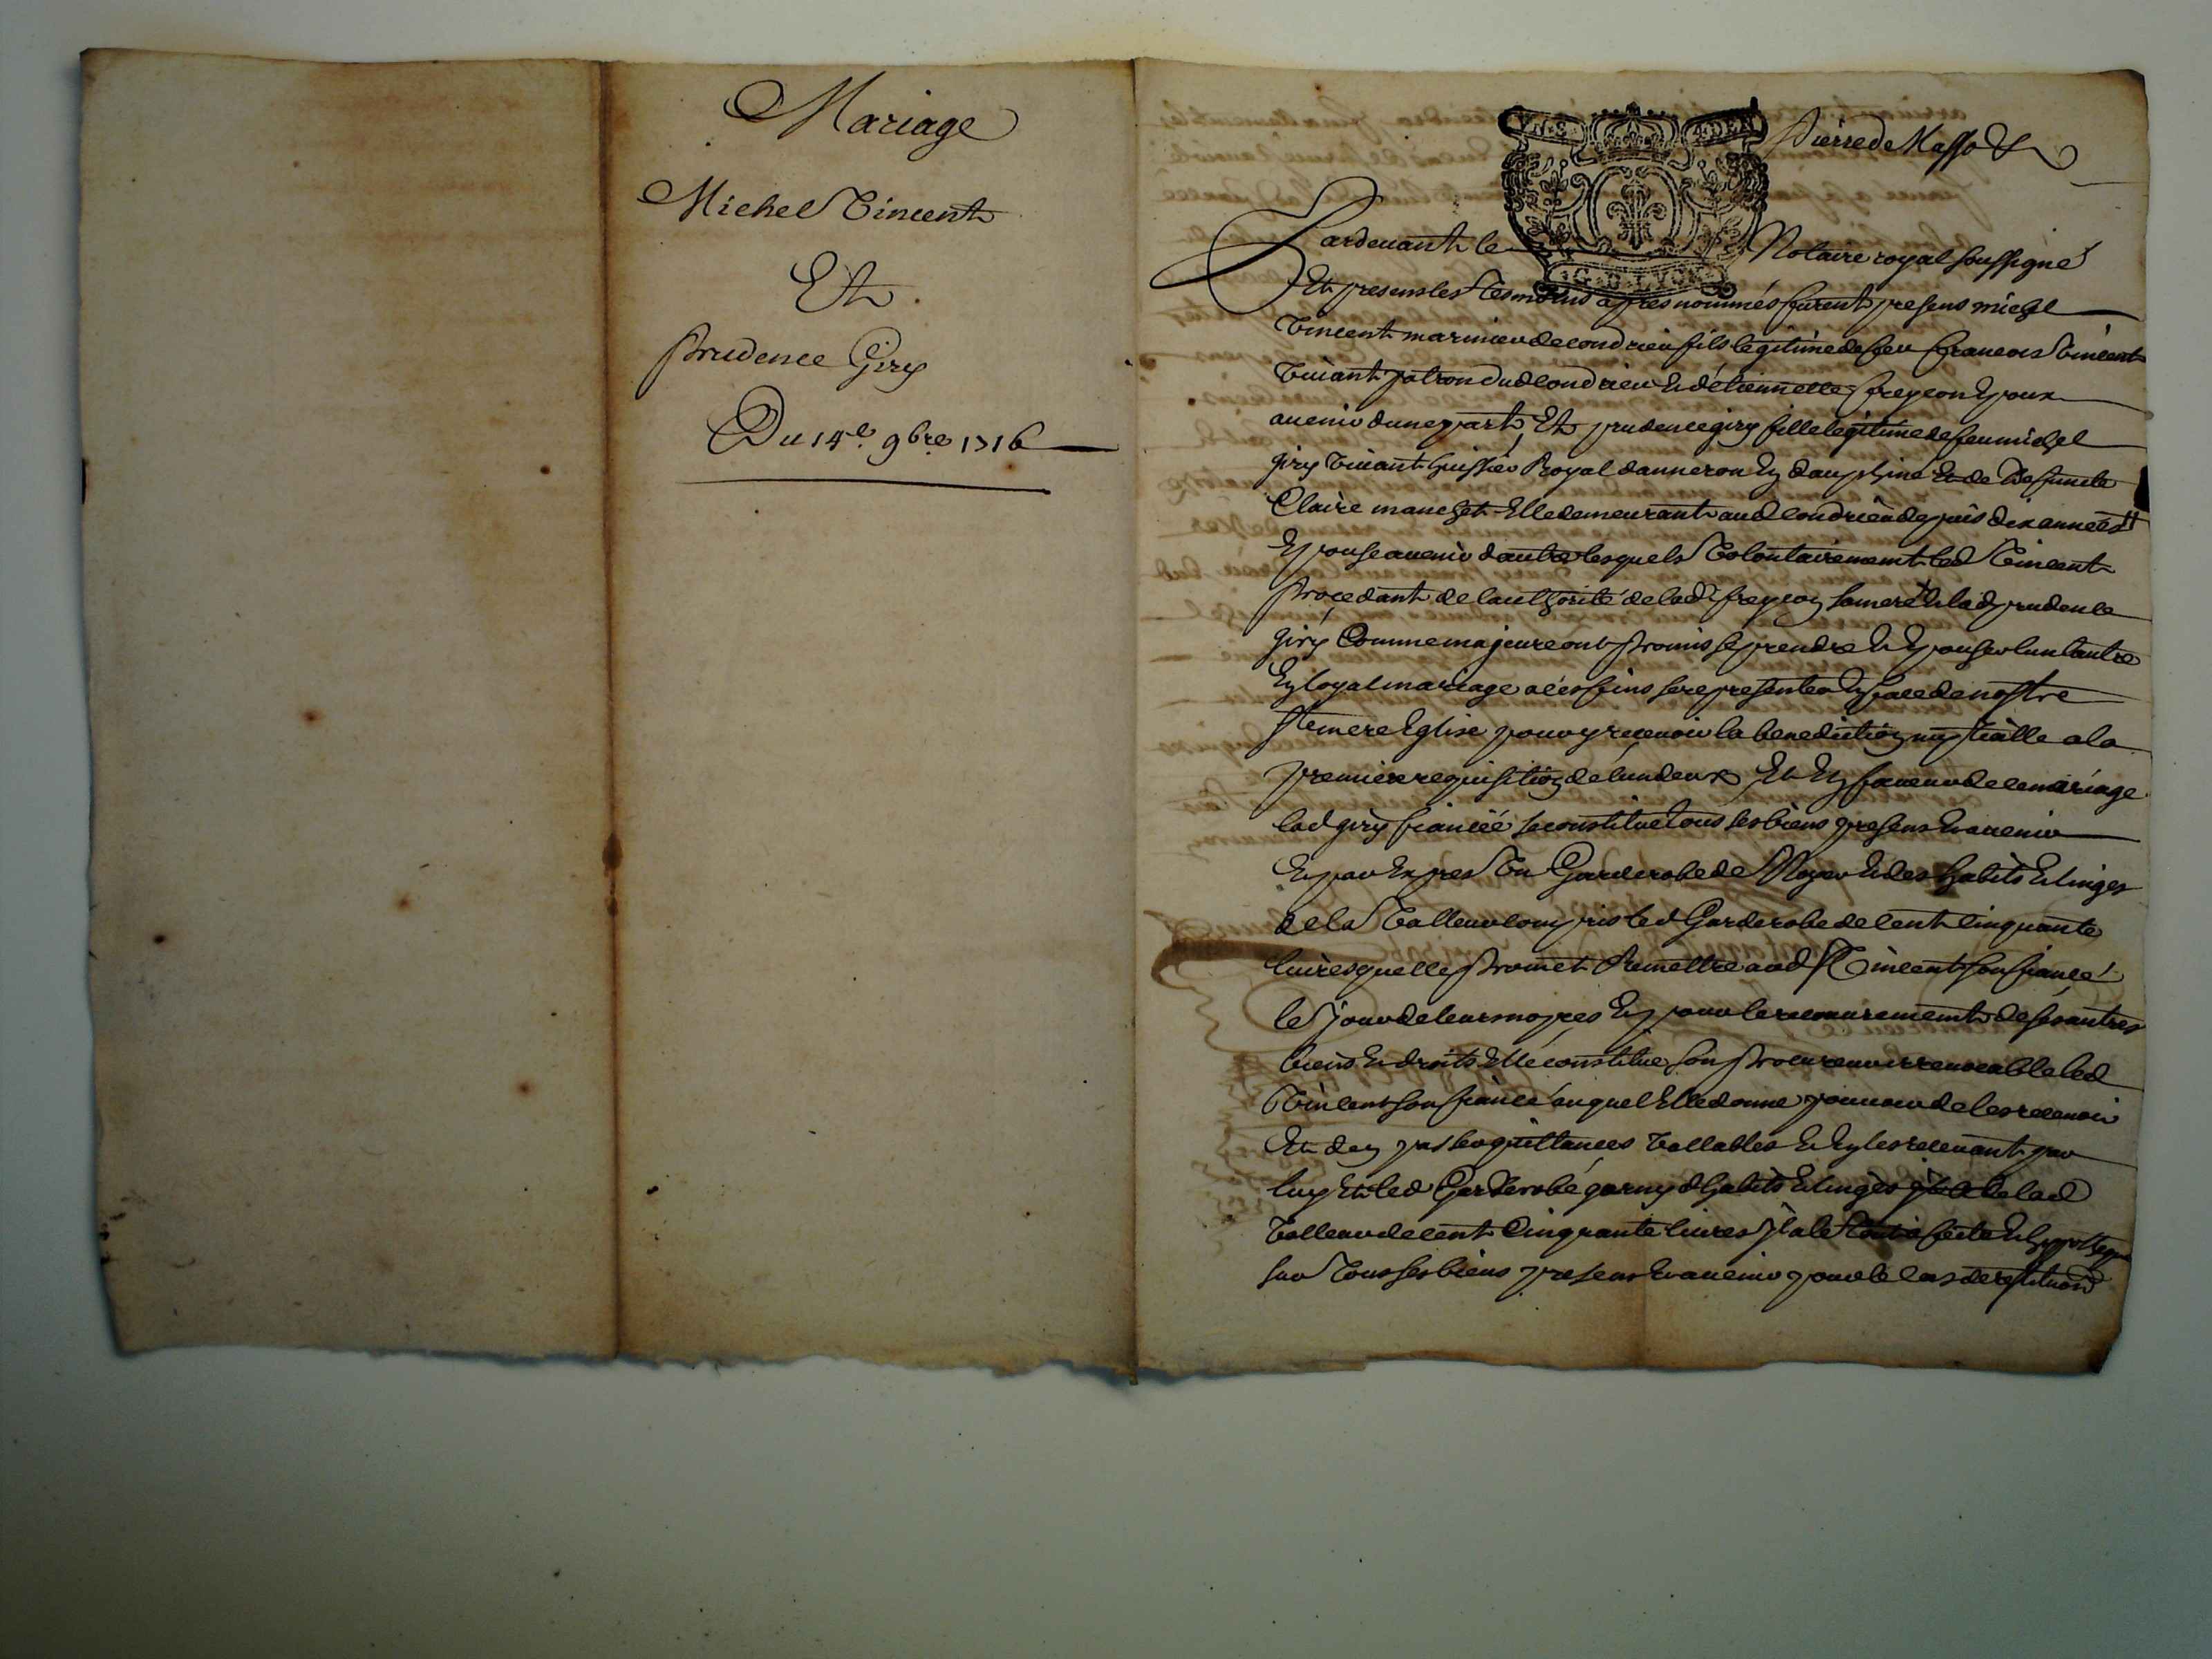 Mariage
Michel Vincent
Et
prudence Giry
Du 14e. 9bre 1716
Pierre de Masso &
G. D. LYON
Pardevant le Notaire royal soussigné
Et presens les tesmoins apres nommés furent presens michel
Vincent marinier de condrieu fils legitime de feu francois Vincent
Vivant patron dud condrieu Et détiennette freycon Epoux
avenir dune part, Et prudence giry fille legitime de feu michel
giry Vivant huissier Royal danneron En dauphiné Et de Defuncte
Claire manchet Elle demeurant aud condrieu depuis dix années
Epouse avenir dautre lesquels Volontairement led Vincent
procedant de lauthorité de lad freycon sa mere Et lad prudence
giry Comme majeure ont promis se prendre Et Epouser lun lautre
En loyal mariage a ces fins se representer En face de nostre
ste mere Eglise pour y recevoir la benediction nuptialle a la
premiere requisition de lun deux Et En faveur de ce mariage
lad giry fiancéé se constitue tous ses biens presens Et avenir
Et par Expres Un Garderobe de Noyer Et des habits Et linges
de la Valleur compris led Garderobe de cent cinquante
livres quelle promet Remettre aud Vincent son fiancé
le jour de leurs nopces Et pour le recouvrement de ses autres
biens Et droits Elle constitue son procureur irrevocable led
Vincent son fiancé auquel Elle donne pouvoir de les recevoir
Et den passer quittances Vallables Et En les recevant par
luy Et led Garderobe garny dhabits Et linges de lad
Valleur de cent Cinquante livres Il a le tout afecté Et hypotequé
sur tous ses biens presens Et avenir pour le cas de restitution